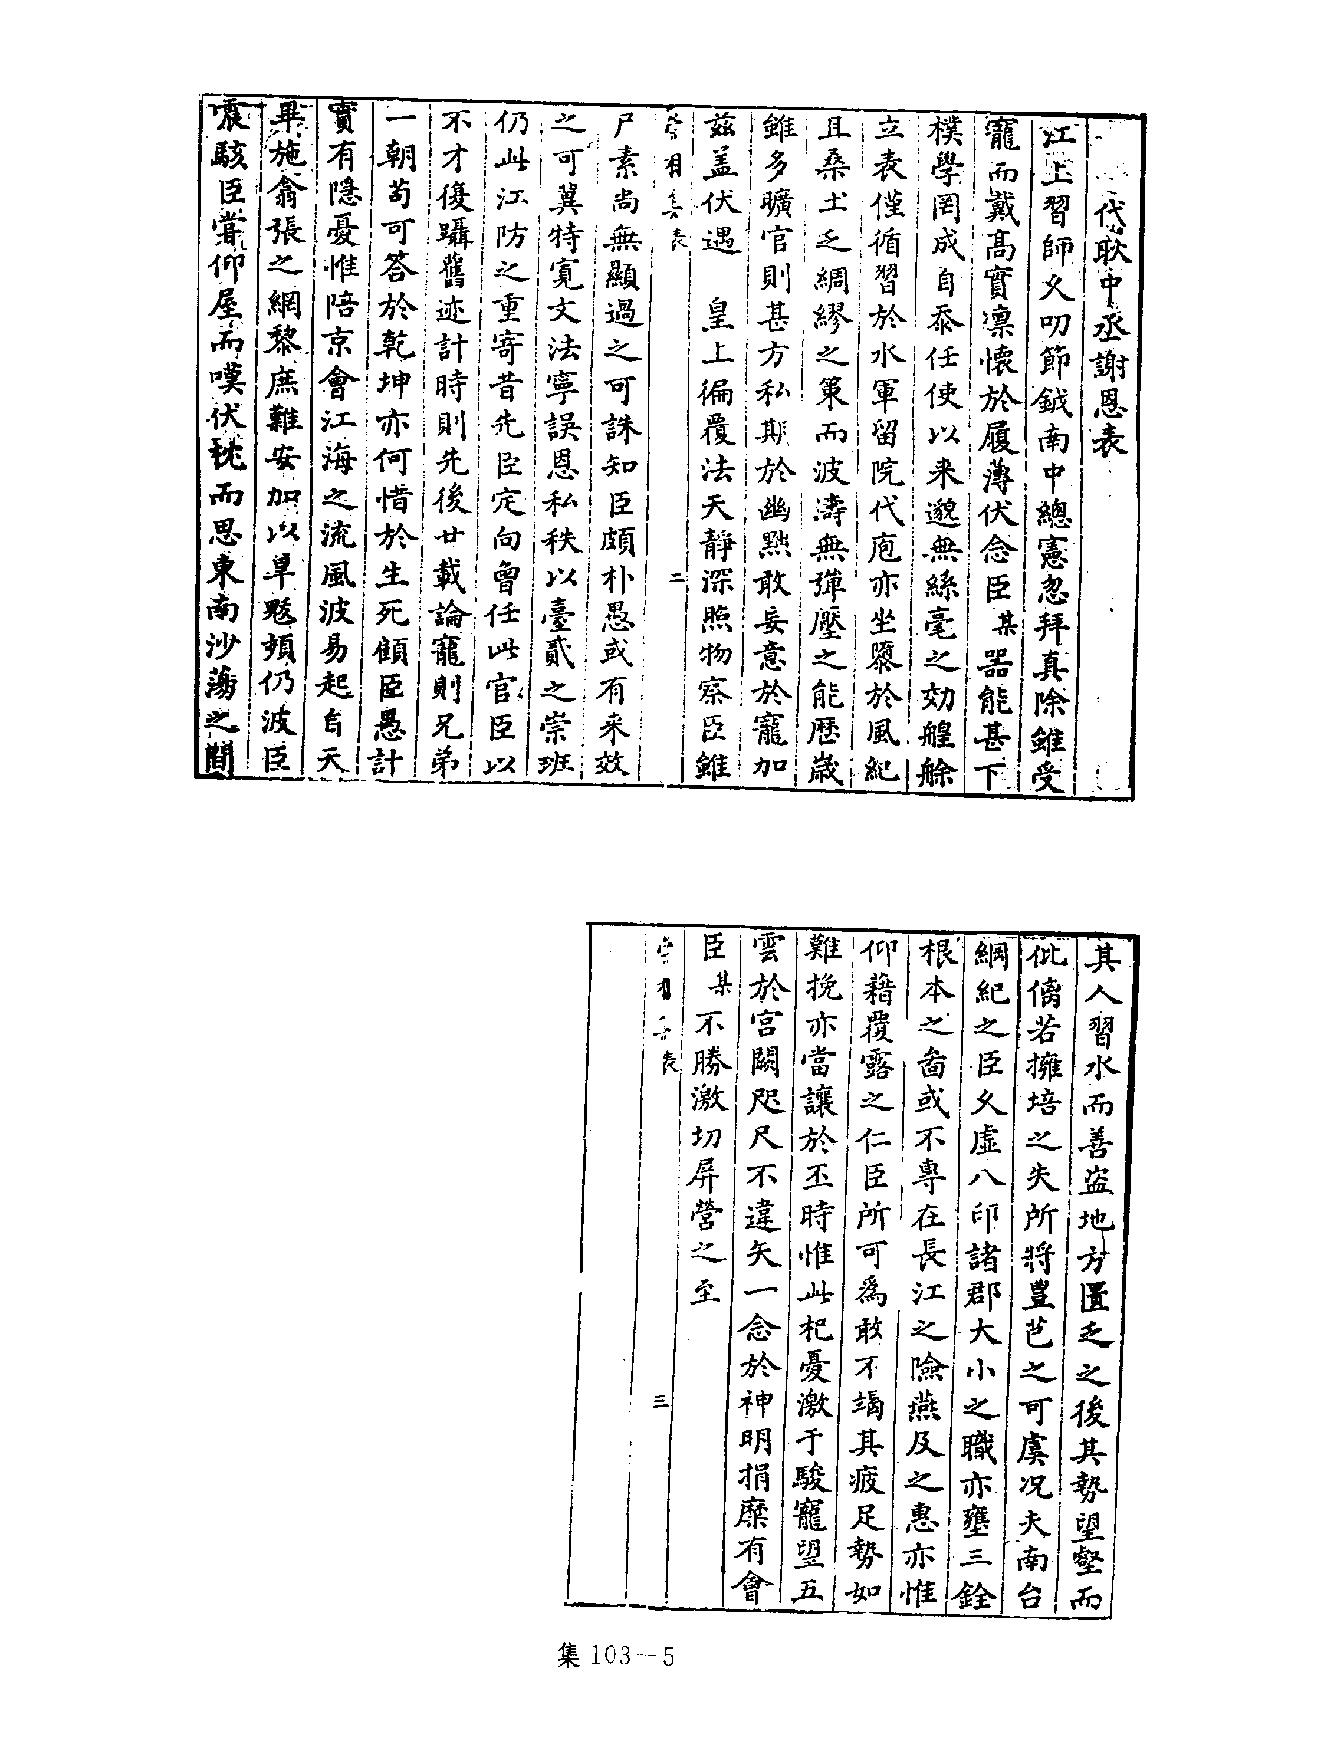 代耿中丞謝恩表
江上習師久叨節鉞南中總憲忽拜真除雖受
寵而戴高實凛懷於履薄伏念臣某器能甚下
樸學罔成自忝任使以来邈無絲毫之効艎艅
立表僅循習於水軍留院代庖亦坐隳於風紀
且桑土乏綢繆之策而波濤無弹壓之能歴歳
雖多曠官則甚方私期於幽黜敢妄意於寵加
兹盖伏遇　皇上徧覆法天靜深照物察臣雖
集表
二
尸素尚無顯過之可誅知臣頗朴愚或有来效
之可冀特寛文法寧誤恩私秩以臺貳之崇班
仍此江防之重寄昔先臣定向曾任此官臣以
不才復躡舊迹計時則先後廿載論寵則兄弟
一朝茍可答於乾坤亦何惜於生死顧臣愚計
實有隱憂惟陪京會江海之流風波易起自天
畢施翕張之網黎庶難安加以旱魃頻仍波臣
震駭臣嘗仰屋而嘆伏枕而思東南沙蕩之間
其人習水而善盗地方匱乏之後其勢望壑而
仳傷若擁培之失所將豈芑之可虞况夫南台
綱紀之臣久虛八印諸郡大小之職亦壅三銓
根本之啚或不專在長江之險燕及之惠亦惟
仰藉覆露之仁臣所可爲敢不竭其疲足勢如
難挽亦當讓於丕時惟此杞憂激于駿寵望五
雲於宫闕咫尺不違矢一念於神明捐糜有會
臣某不勝激切屏營之至
表
三
集 103--5